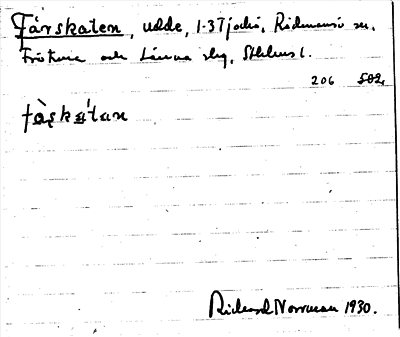 Tårskaten, udde, 1-37 Jochö, Rådmansö sn.
Frötuna och Länna slg, Sthlms l.
206 502
tåskatan
Rickard Norrman 1930.